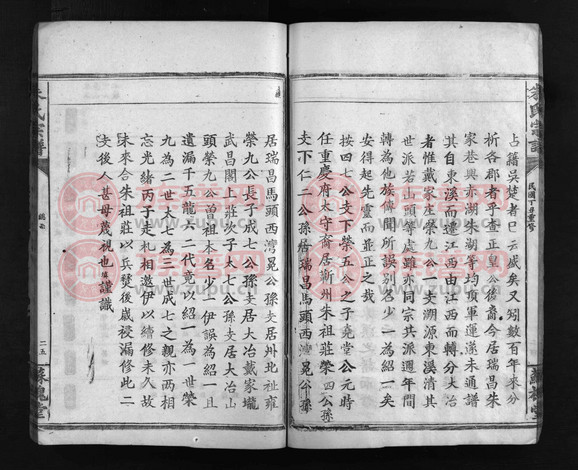 朱氏宗譜
民國丁丑重修
占籍吳楚者已云歲矣又矧數百年來分
析各郡者乎查正皇公後裔今居瑞昌朱
家巷興亦湖朱剃等均頂軍運遂未通譜
其自東溪而遷江西由江西而轉分大冶
者惟戴家庄榮九公一支溯源東溪清其
世派若山頭等處雖亦同宗共派週年間
轉為他族傳聞所誤別名少一為紹一矣
安得起先靈而兼正之哉
按四七公支下榮五公之子堯堂公元時
任重慶府太守裔居蘄州朱祖莊榮四公孫
支下仁二公孫居瑞昌馬頭西灣晃公孫
居瑞昌馬頭西灣晃公孫支居州北祉雍
榮九公長子成七公孫支居大冶戴家壠
武昌閣上莊次子大七公孫支居大冶山
頭榮九公曾祖本名少一伊誤為紹一且
遺漏千五龍六二代竟以紹一為一世榮
九為二世大七為三世成七之親亦兩相
忘光緒丙子走札相邀伊以續修未久故
未來合朱祖莊以兵燹後歲祲漏修此二
支後人甚毋蔑視也 謹識
朱氏宗譜
二五